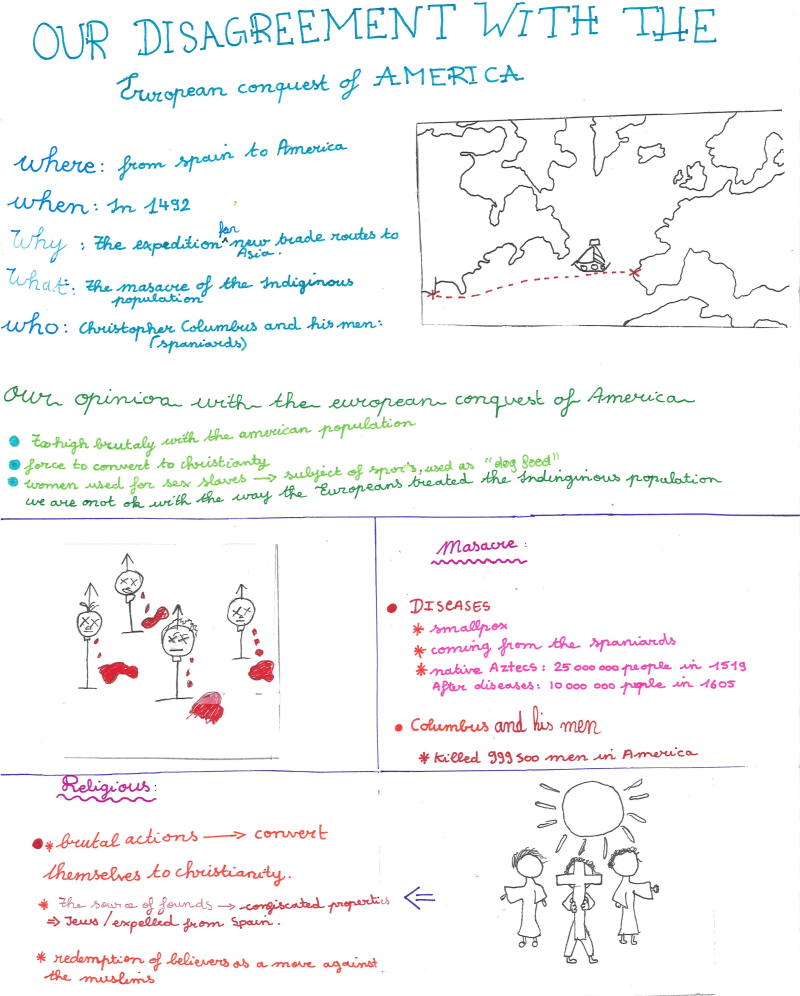 OUR DISAGREEMENT WITH THE
European conquest of AMERICA
where: from spain to America
when: In 1492
Why: The expedition for new trade routes to
Asia.
What: the masacre of the Indiginous
population
who: Christopher Columbus and his men:
(spaniards)
Our opinion with the european conquest of America
to high brutaly with the american population
force to convert to christianty
women used for sex slaves → subject of spor's, used as "dog feed"
we are not ok with the way the Europeans treated the Indinginous population
Masacre:
DISEASES
* smallpox
* coming from the spaniards
* native Aztecs: 25 000 000 people in 1519
After diseases: 10 000 000 people in 1605
Columbus and his men
* killed 999 500 men in America
Religious:
* brutal actions → convert
themselves to christianity.
* The source of founds → congiscated properties
⇒ Jews / expelled from Spain.
* redemption of believers as a move against
the muslims